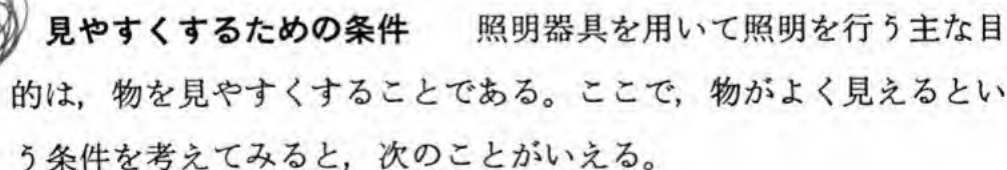 見やすくするための条件　　照明器具を用いて照明を行う主な目
的は，物を見やすくすることである。ここで，物がよく見えるとい
う条件を考えてみると，次のことがいえる。